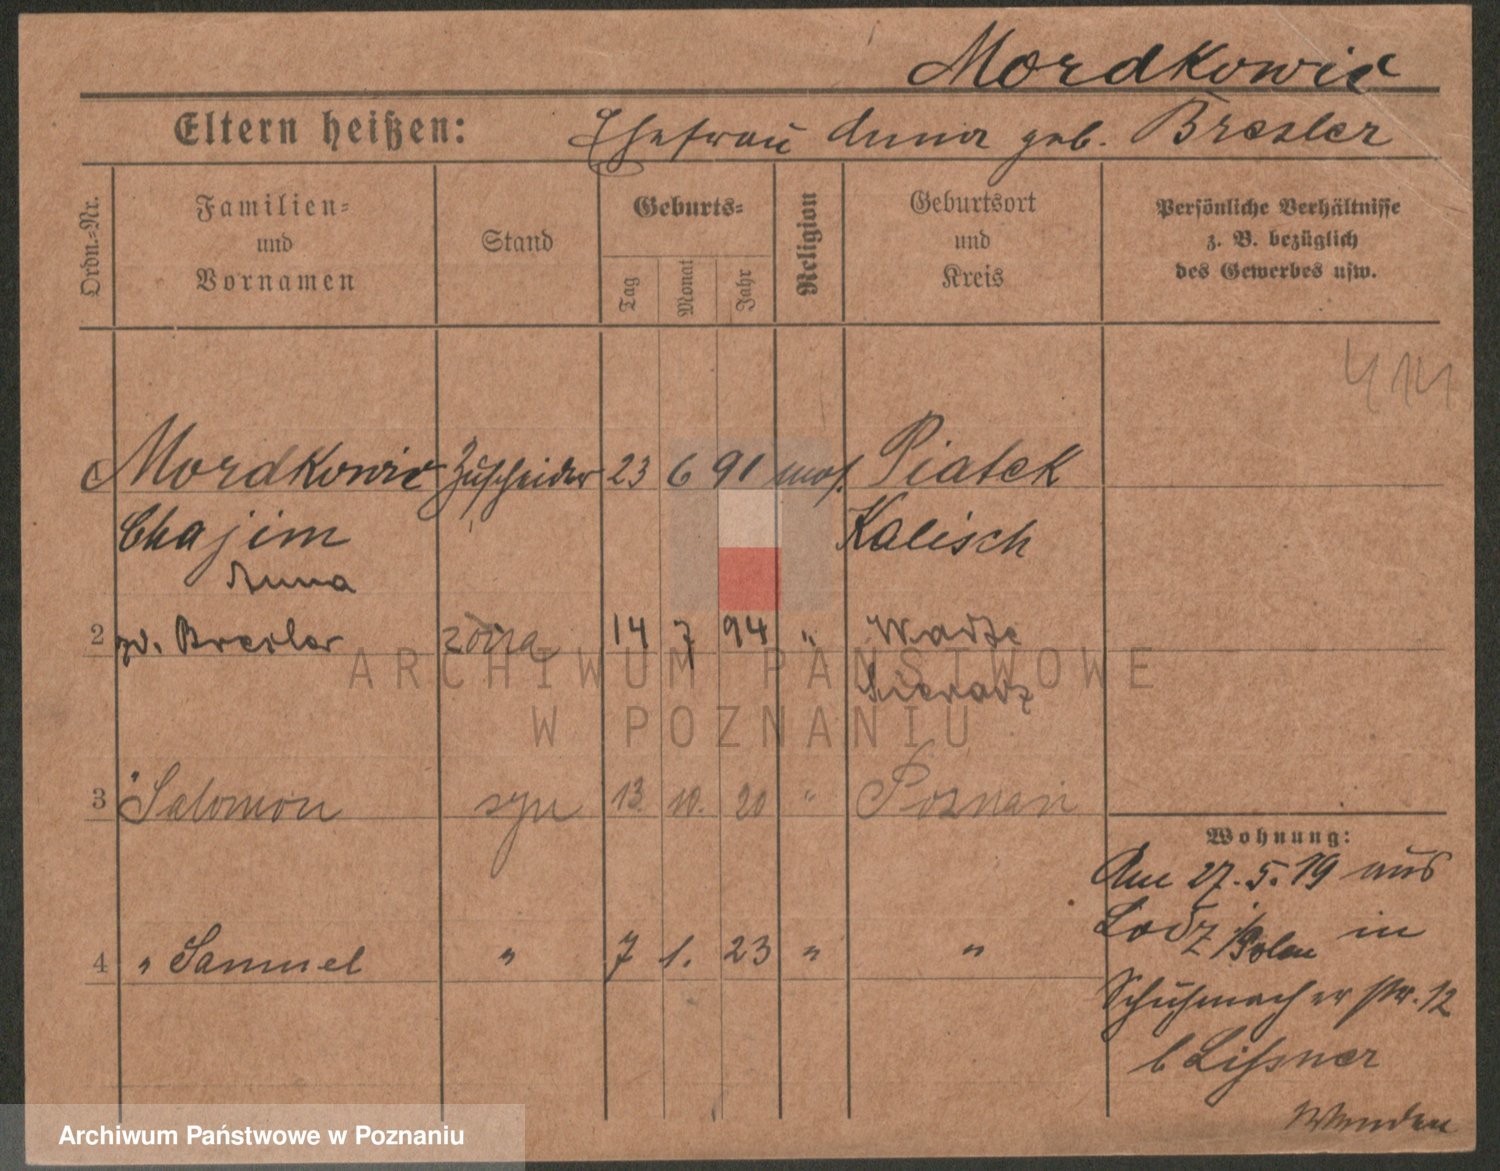 Mordkowic
Eltern heißen: Ehefrau Anna geb. Bresler
Ordn.-Nr.
Familien-
und
Vornamen
Stand
Geburts-
Tag
Monat
Jahr
Religion
Geburtsort
und
Kreis
Persönliche Verhältnisse
z. B. bezüglich
des Gewerbes usw.
Mordkowic Zuschneider 23 6 91 mos. Piatek
Chajim Kalisch
Anna
2 Bresler żona 14 7 94 " Warta
Sieradz
3 " Salomon syn 13. 10. 20 " Poznań
4 " Samuel " 7 1. 23 " "
Wohnung:
Am 27.5.19 aus
Lodz i/Polen in
Schuhmacherstr. 12
b Lissner
Wenden
ARCHIWUM PAŃSTWOWE
W POZNANIU
Archiwum Państwowe w Poznaniu